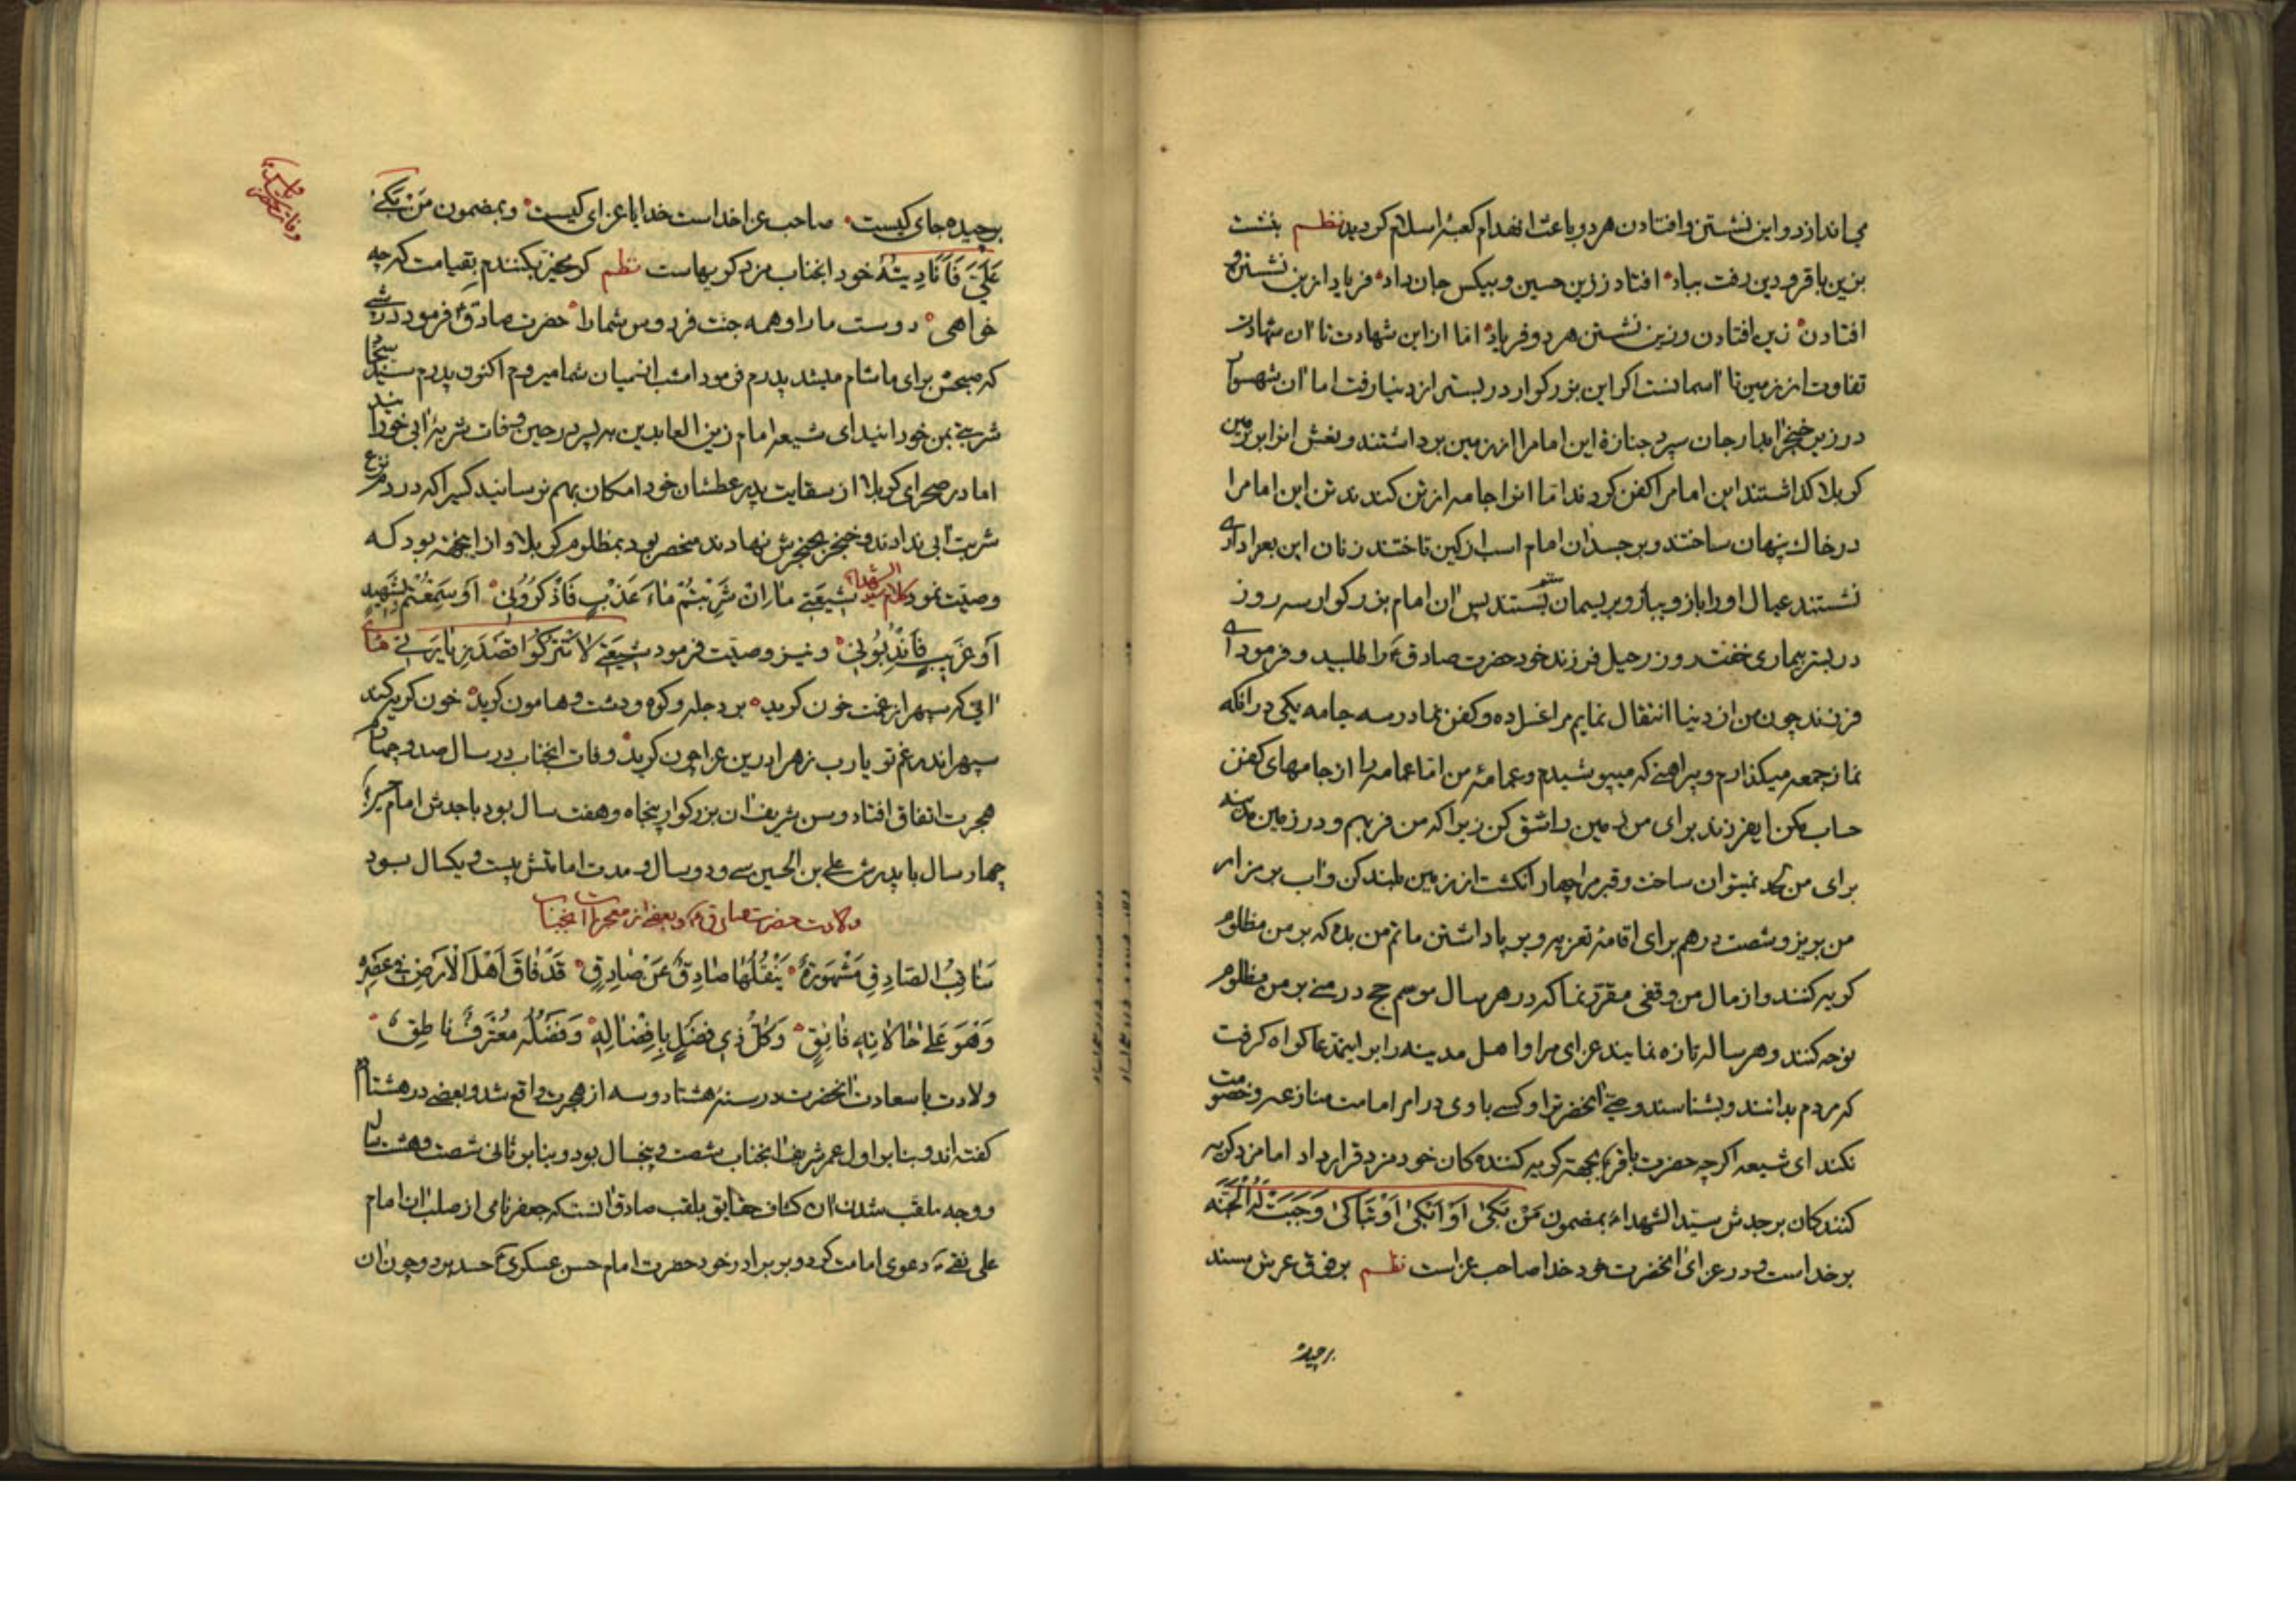 می اندازد و این نشستن و افتادن هر دو باعث انهدام کعبهٔ اسلام کردید نظم بنشست
بزین باقر و دین رفت بباد افتاد ز زین حسین و بیکس جان داد فریاد ازین نشستن و
افتادن زین افتادن و زین نشستن هر دو فریاد اما از این شهادت تا آن شهادت
تفاوت از زمین تا آسمانست اکر این بزرکوار در بستر از دنیا رفت اما آن
در زیر خنجر آبدار جان سپرد جنازهٔ این امام را از زمین برداشتند و نعش انرا بر زمین
کربلا کذاشتند این امام را کفن کردند اما انرا جامه از تن کندند تن این امام را
در خاک پنهان ساختند و بر جسد آن امام اسب از کین تاختند زنان این بعزاداری
نشستند عیال او را بازو ببازو بریسمان بستند پس ان امام بزرکوار سه روز
در بستر بیماری خفت روز رحیل فرزند خود حضرت صادق ع را طلبید و فرمود ای
فرزند چون من از دنیا انتقال نمایم مرا غسل ده و کفن نما در سه جامه یکی در آنکه
نماز جمعه میکذارم و پیراهنی که میپوشیدم و عمامهٔ من اما عمامه را از جامهای کفن
حساب مکن ایفرزند برای من زمین را شق کن زیرا که من فربهم و در زمین مدینه
برای من لحد نمیتوان ساخت و قبر مرا چهار انکشت از زمین بلند کن و اب بر مزار
من بریز و شصت درهم برای اقامهٔ تعزیه و بر پا داشتن ماتم من بده که بر من مظلوم
کریه کنند و از مال من وقفی مقرر نما که در هر سال موسم حج در منی بر من مظلوم
نوحه کنند و هر ساله تازه نمایند عزای مرا و اهل مدینه را بر این مدعا کواه کرفت
که مردم بدانند و بشناسند وصی آنحضرت را و کسی با وی در امر امامت منازعه و خصومت
نکند ای شیعه اکرچه حضرت باقر ع بجهة کریه کننده کان خود مزد قرار داد اما مزد کریه
کنندکان بر جدش سید الشهداء بمضمون مَنْ بَکیٰ اَوْ اَبْکیٰ اَوْ تَبٰاکیٰ وَجَبَتْ لَهُ الْجَنَّة
بر خداست و در عزای آنحضرت خود خدا صاحب عزاست نظم بر فرق عرش مسند
برچیده
برچیده جای کیست صاحب عزا خداست خدایا عزای کیست و بمضمون مَنْ بَکیٰ
عَلَیَّ فَاَنَا دِیَتُهُ خود انجناب مزد کریهاست نظم
خواهی دوست ما را و همه جنت فردوس شما را حضرت صادق ع فرمود در شبی
که صبحش برای ما شام میشد پدرم فرمود امشب از میان شما میروم اکنون پدرم سید سجاد
شربتی بمن خورانید ای شیعه امام زین العابدین به پسر در حین وفات شربهٔ ابی خورانید
اما در صحرای کربلا از سقایت پدر عطشان خود امکان بهم نرسانید کسیرا که در دم نزع
شربت آبی ندادند و خنجر بحنجرش نهادند منحصر بود بمظلوم کربلا و از اینجهة بود که
وصیت نمود کلام سید الشهداء شیعَتی مٰا اِنْ شَرِبْتُمْ مٰاءَ عَذْبٍ فَاذْکُرُونی اَوْ سَمِعْتُمْ بِشَهیدٍ
اَوْ غَرِیبٍ فَانْدُبُونی و نیز وصیت فرمود شیعَتی لاٰ تَتْرُکُوا
ای که سپهر از غمت خون کرید بر دجله و کوه و دشت و هامون کرید خون کریه کند
سپهر اندر غم تو یارب زهرا درین عزا چون کرید وفات انجناب در سال صد و چهاردهم
هجرت اتفاق افتاد و سن شریف ان بزرکوار پنجاه و هفت سال بود با جدش امام حسین
چهار سال با پدرش علی بن الحسین سی و دو سال و مدت امامتش بیست و یکسال بود
ولادت حضرت صادق ع و بعضی از معجزات آنجناب
مَنٰاقِبُ الصّادِقِ مَشْهُورَةٌ یَنْقُلُهٰا صٰادِقٌ عَنْ صٰادِقٍ قَدْ فٰاقَ اَهْلَ الْاَرْضِ فی عَصْرِهِ
وَ هُوَ عَلیٰ حٰالاٰتِهِ فٰائِقٌ وَ کُلُّ ذی فَضْلٍ بِاِفْضٰالِهِ وَ فَضْلِهِ مُعْتَرِفٌ نٰاطِقٌ
ولادت با سعادت آنحضرت در سنه هشتاد و سه از هجرت واقع شد و بعضی در هشتادم
کفته اند و بنابر اول عمر شریف آنجناب شصت و پنجسال بود و بنابر ثانی شصت و هشت سال
و وجه ملقب شدن آن کشاف حقایق بلقب صادق آنست که جعفر نامی از صلب آن امام
علی نقی ع دعوی امامت کرد و بر برادر خود حضرت امام حسن عسکری ع حسد برد و چون آن